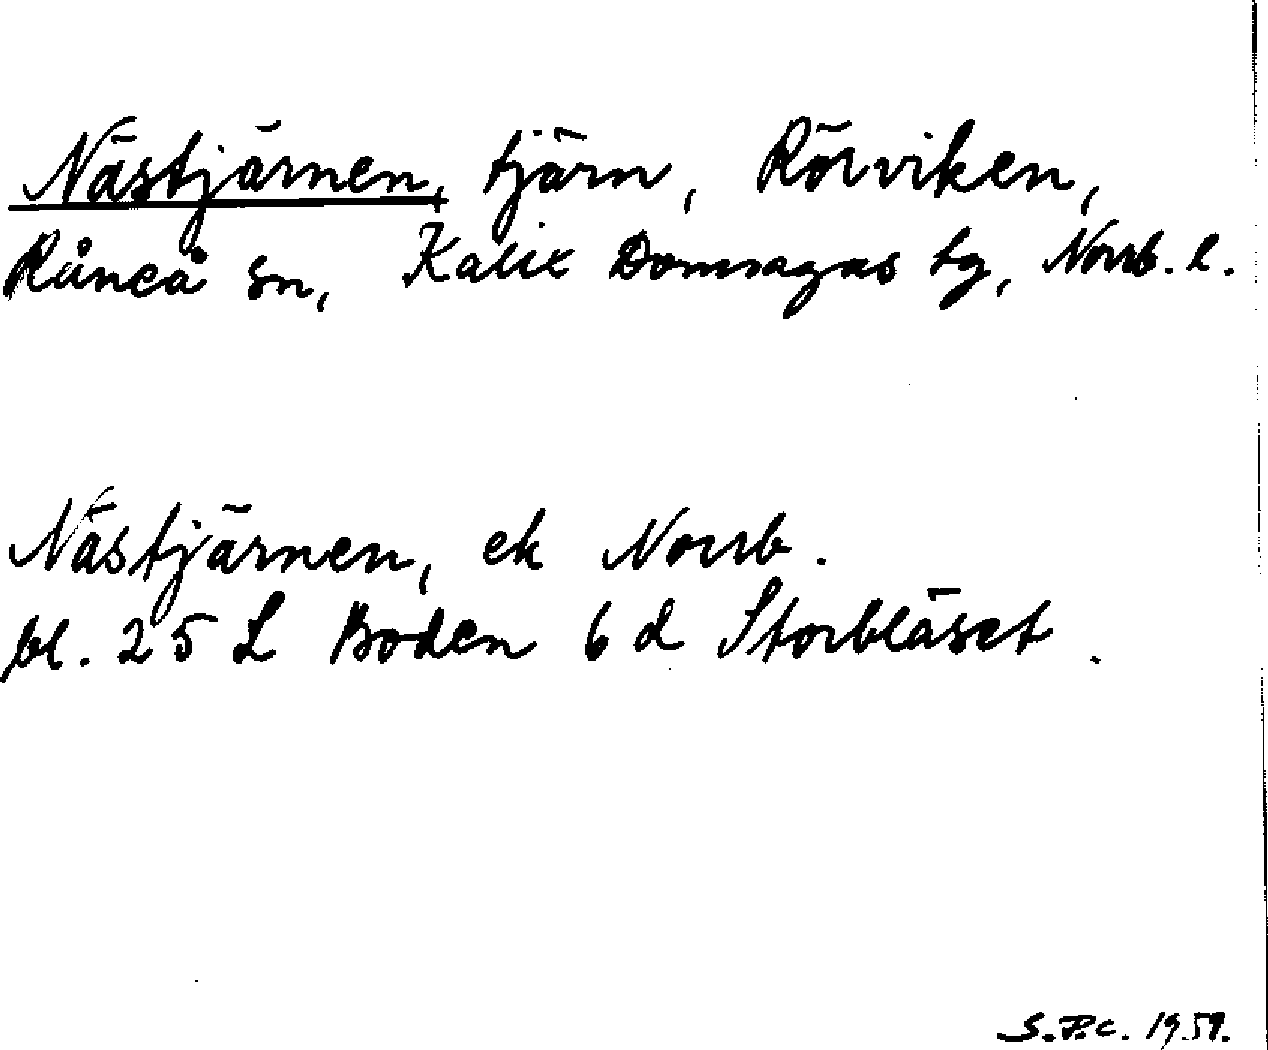 Nästjärnen, tjärn, Rörviken,
Råneå sn, Kalix Domsagas tg, Norrb. l.
Nästjärnen, ek Norrb.
bl. 25 L Boden 6 d Storbläset.
S.P.C. 1959.